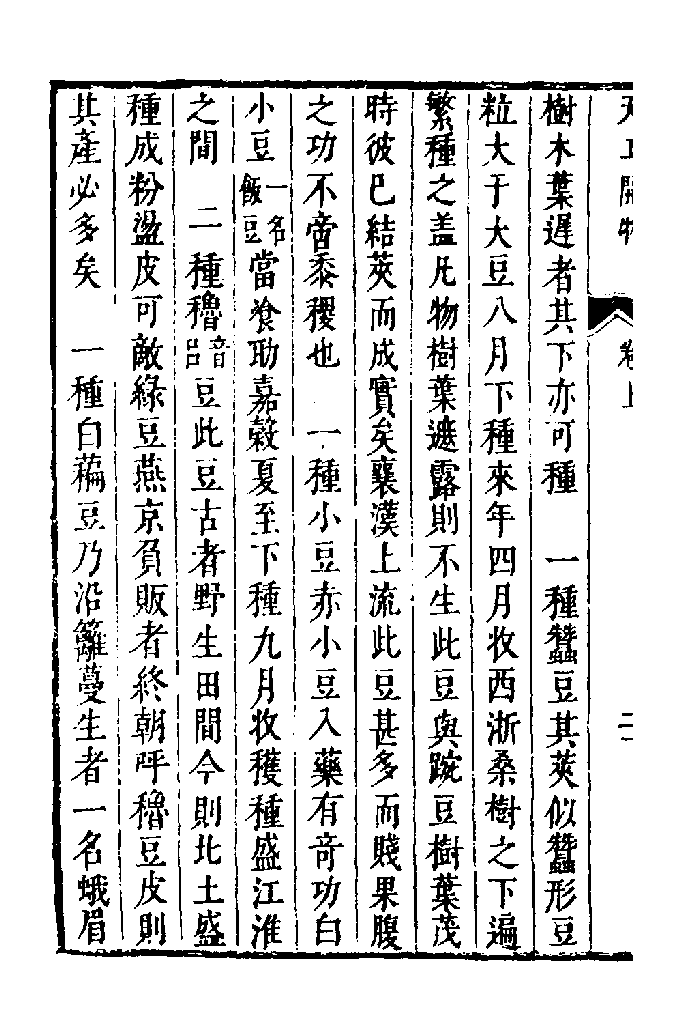 天工開物 卷上
樹木葉遲者其下亦可種 一種蠶豆其莢似蠶形豆
粒大于大豆八月下種來年四月收西浙桑樹之下遍
繁種之盖凡物樹葉遮露則不生此豆與豌豆樹葉茂
時彼已結莢而成實矣襄漢上流此豆甚多而賤果腹
之功不啻黍稷也 一種小豆赤小豆入藥有奇功白
小豆一名飯豆當飧助嘉穀夏至下種九月收穫種盛江淮
之間 二種穭音呂豆此豆古者野生田間今則北土盛
種成粉盪皮可敵綠豆燕京負販者終朝呼穭豆皮則
其產必多矣 一種白藊豆乃沿籬蔓生者一名蛾眉